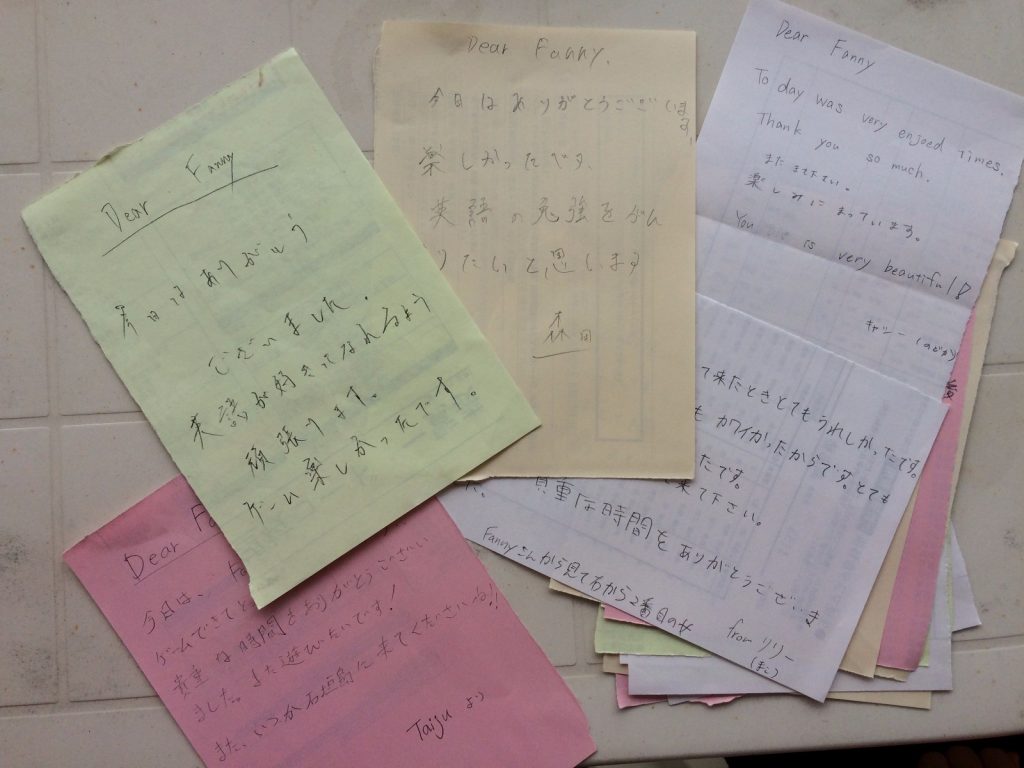 Dear Fanny
今日はありがとう
ございました.
英語が好きになれるよう
頑張ります。
ゲーム楽しかったです。
Dear Fanny.
今日はありがとうございます
楽しかったです、
英語の勉強をがん
りたいと思います
森田
Dear Fanny
To day was very enjoed times.
Thank you so much.
また来て下さい。
楽しみにまっています。
You is very beautiful!
キャシー (のどか)
Dear Fa
今日は、
ゲームできてと
貴重な時間をありがとうございい
ました。また遊びたいです!
また、いつか石垣島に来てくださいね!!
Taiju より
て来たときとてもうれしかったです。
も カワイかったからです。とても
たです。
来て下さい。
貴重な時間をありがとうございま
た。
Fannyさんから見て 2番目の
from リリー
(まこ)